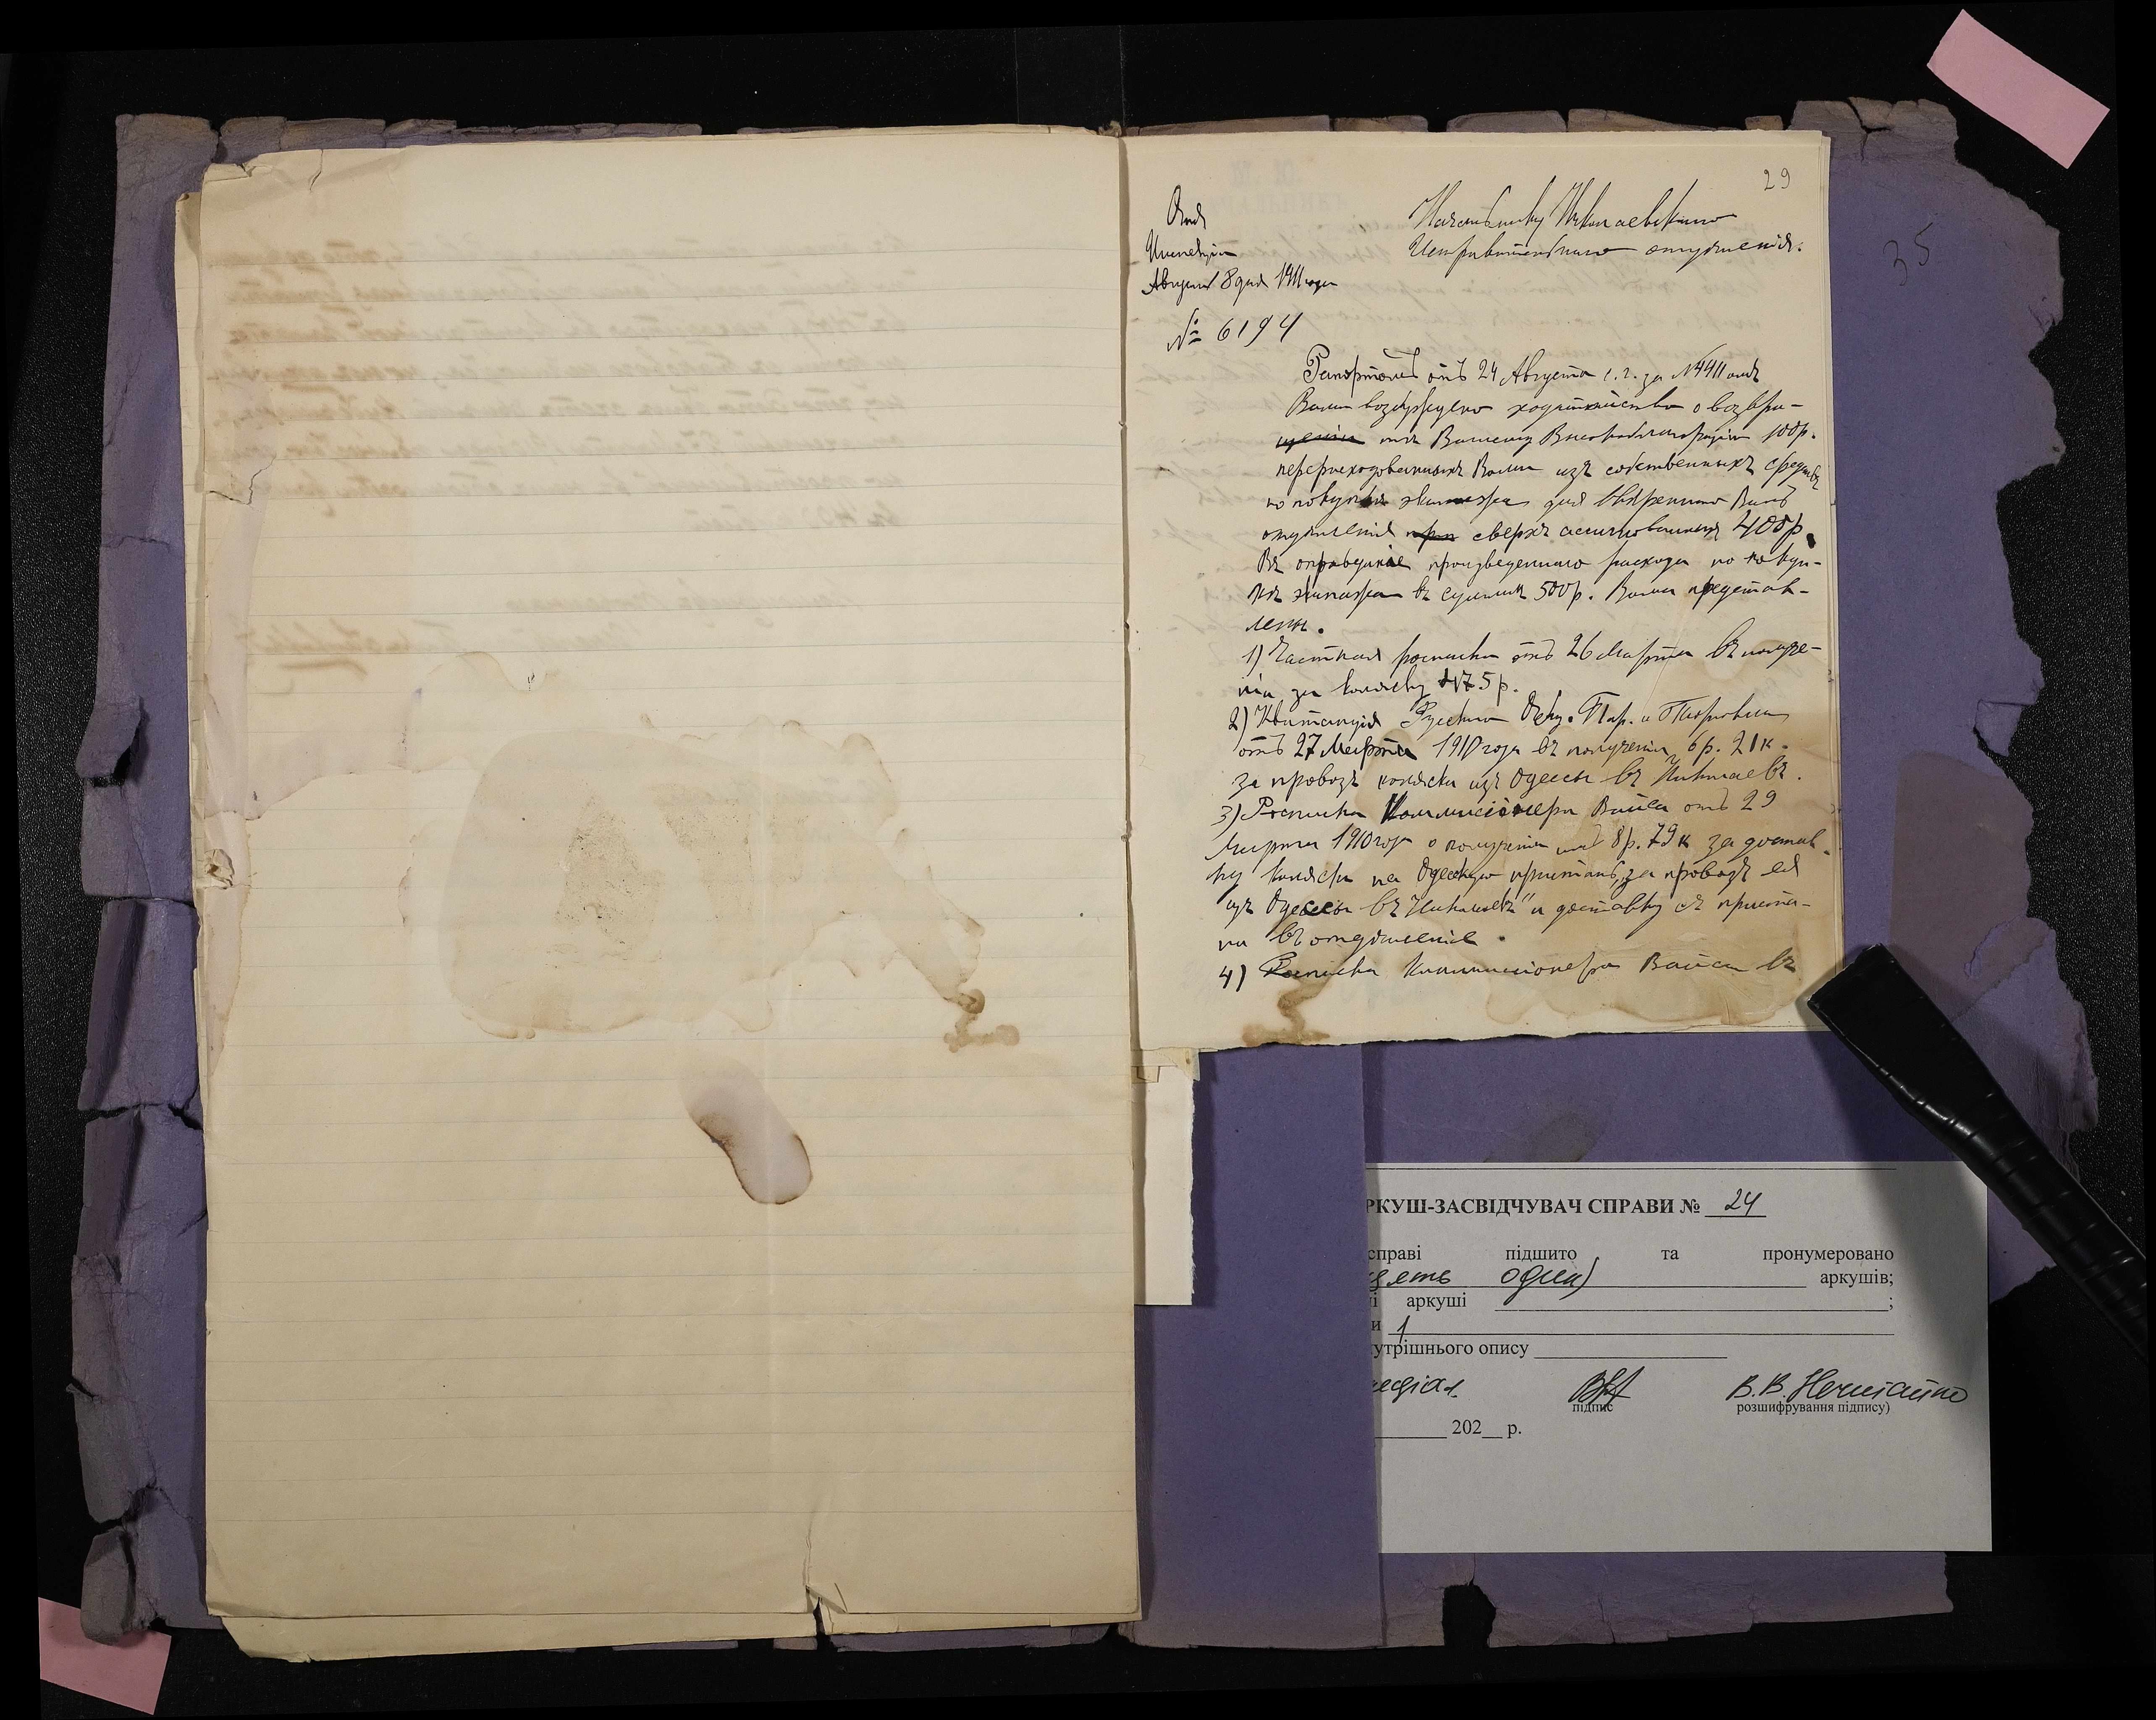 29
35
Начальнику Николаевскаго
Исправительнаго отдѣленія.
Августа 8 дня 1911 года
№ 6194
Рапортомъ отъ 24 Августа с.г. за №4411
Вами возбуждено ходатайство о возвра-
щеніи Вашему Высокоблагородію 100р.
перерасходованныхъ Вами изъ собственныхъ средствъ
по покупкѣ экипажа для ввѣреннаго Вамъ
отдѣленія при сверхъ ассигнованныхъ 400р.
Въ оправданіе произведеннаго расхода по покуп-
кѣ экипажа въ суммѣ 500р. Вами представ-
лены.
1) Частная росписка отъ 26 Марта въ получе-
ніи за коляску 475р.
2) Квитанція Русскаго Общ. Пар. и Торговли
отъ 27 Марта 1910 года въ полученіи 6р. 21к.
за провозъ коляски изъ Одессы въ Николаевъ.
3) Росписка Коммисіонера Вайса отъ 29
Марта 1910 года о полученіи имъ 8р. 79к за достав-
ку коляски на Одескую пристань, за провозъ ея
изъ Одессы въ Николаевъ" и доставку съ приста-
ни въ отдѣленіе.
4) Росписка Коммисіонера Вайса въ
РКУШ-ЗАСВІДЧУВАЧ СПРАВИ № 24
справі підшито та пронумеровано
цять один) аркушів;
і аркуші ;
и 1
утрішнього опису
підпис
розшифрування підпису)
202 р.